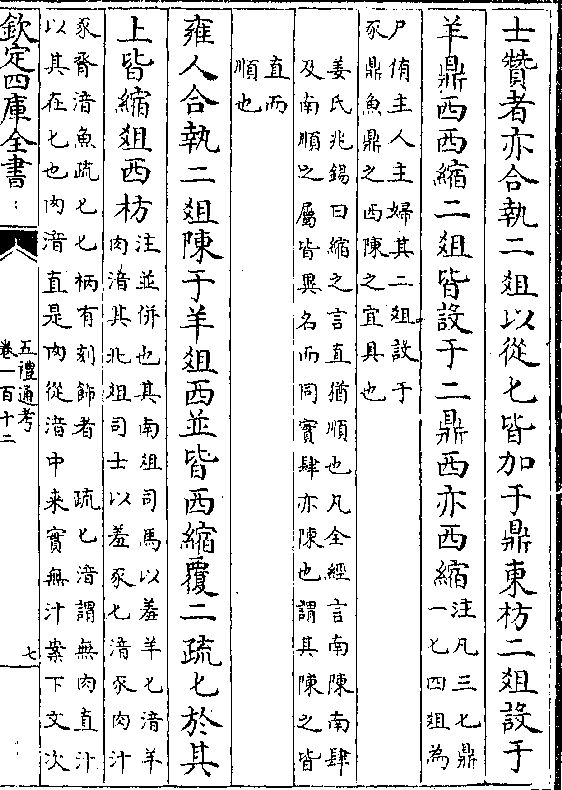 士贊者亦合執二俎以從匕皆加于鼎東枋二俎設于
羊鼎西西縮二俎皆設于二鼎西亦西縮
注凡三匕鼎
一匕四俎為
尸侑主人主婦其二俎設于
豕鼎魚鼎之西陳之宜具也
姜氏兆錫曰縮之言直猶順也凡全經言南陳南肆
及南順之屬皆異名而同實肆亦陳也謂其陳之皆
直而
順也
雍人合執二俎陳于羊俎西並皆西縮覆二疏匕於其
上皆縮俎西枋
注並併也其南俎司馬以羞羊匕湆羊
肉湆其北俎司士以羞豕匕湆豕肉汁
豕脀湆魚疏匕匕柄有刻飾者　疏匕湆謂無肉直汁
以其在匕也肉湆直是肉從湆中来實無汁案下文次
欽定四庫全書
五禮通考
卷一百十二
七